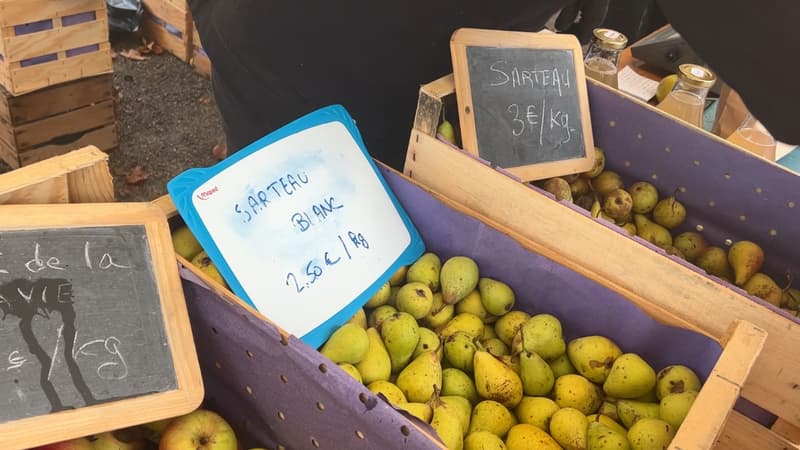 SARTEAU
3€/kg
Maped
SARTEAU
BLANC
2.50€/kg
de la
VIE
€/kg